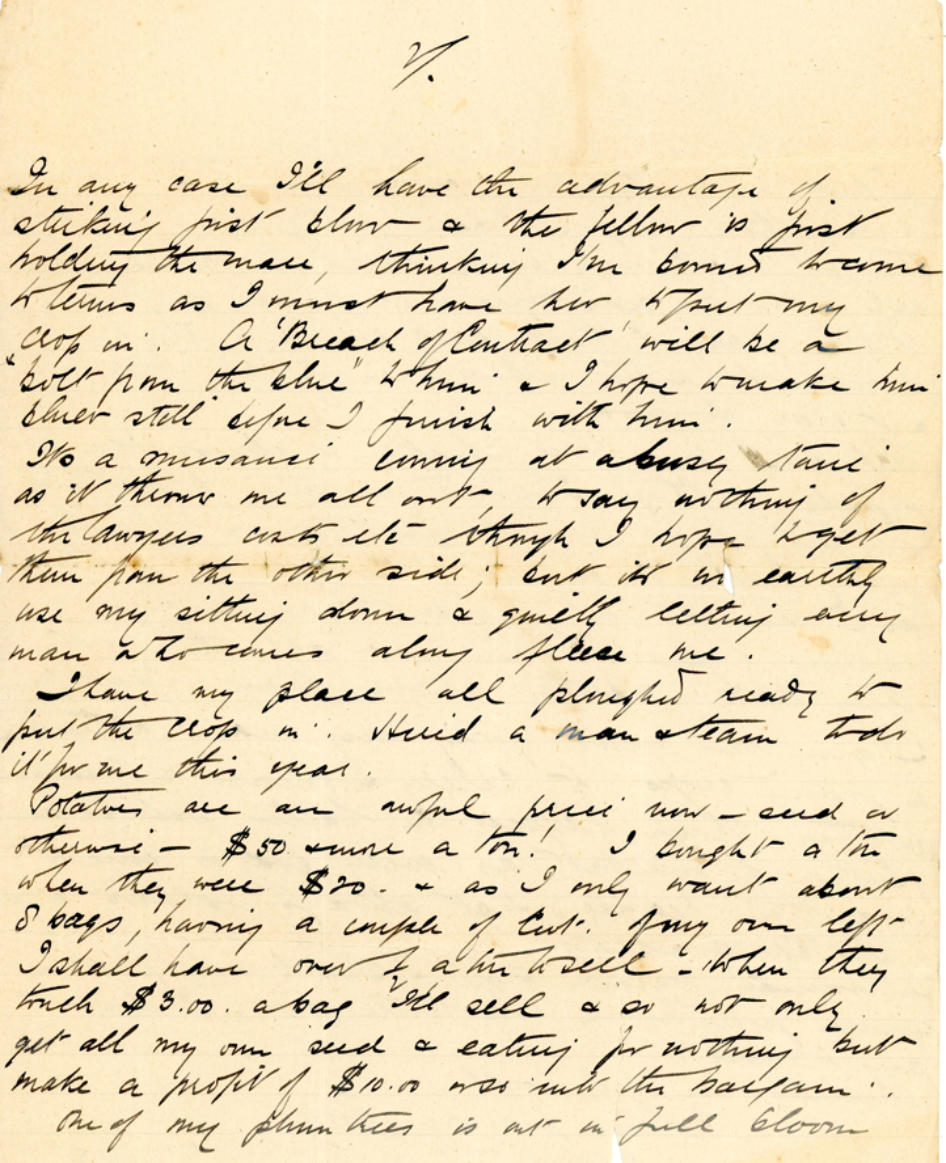 2/.
In any case I'll have the advantage of
striking first blow & the fellow is just
holding the mare, thinking I'm bound to come
to terms as I must have her to put my
crop in. A 'Breach of Contract' will be a
"bolt from the blue" to him & I hope to make him
bluer still before I finish with him.
Its a nuisance coming at a busy time
as it throws me all out, to say nothing of
the lawyers costs etc though I hope to get
them from the other side; but its no earthly
use my sitting down & quietly letting every
man who comes along fleece me.
I have my place all ploughed ready to
put the crop in. Hired a man & team to do
it for me this year.
Potatoes are an awful price now - seed or
otherwise - $50 & more a ton! I bought a ton
when they were $20. & as I only want about
8 bags, having a couple of Cwt. of my own left
I shall have over ½ a ton to sell - When they
touch $3.00. a bag I'll sell & so not only
get all my own seed & eating for nothing but
make a profit of $10.00 or so into the bargain.
One of my plum trees is out in full bloom